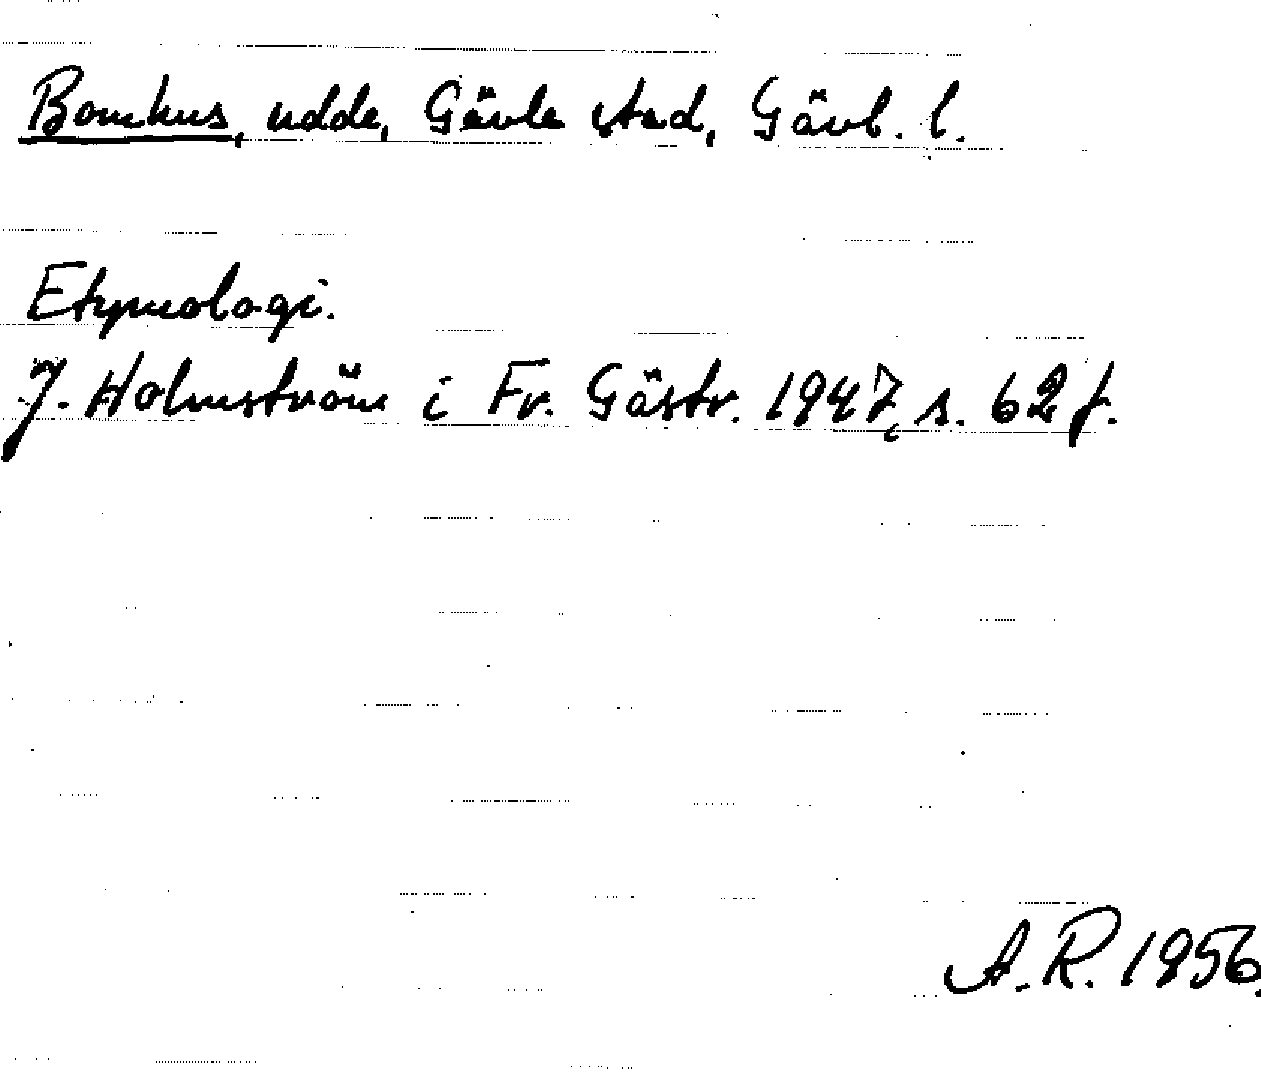 Bomhus, udde, Gävle stad, Gävl. l.
Etymologi.
J. Holmström i Fr. Gästr. 1947, s. 62 f.
A.R. 1956.